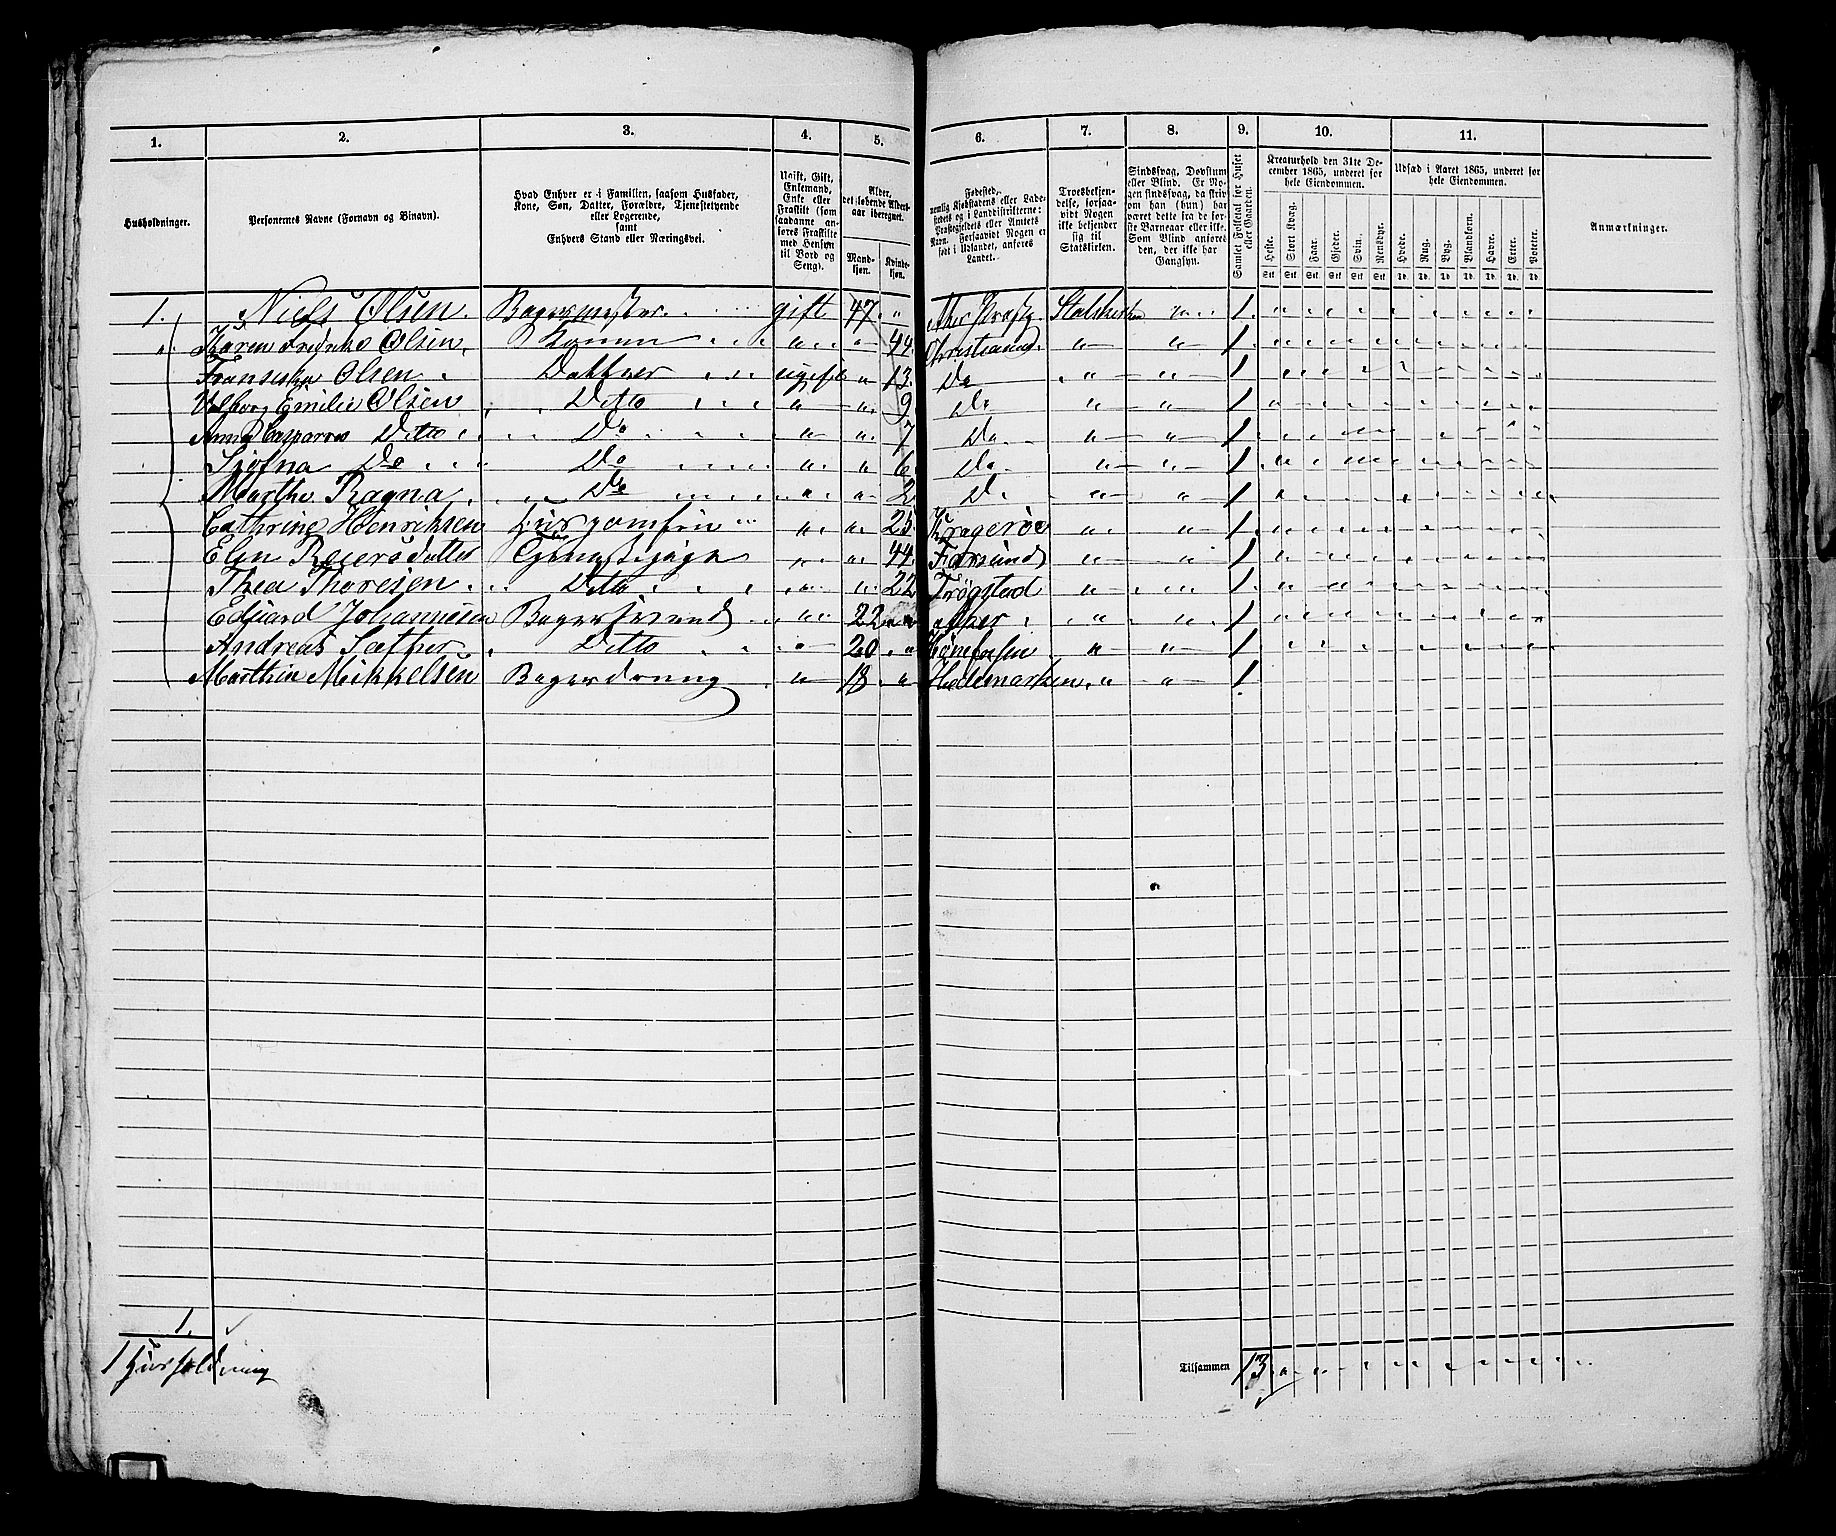 1. 2. 3. 4. 5. 6. 7. 8. 9. 10. 11.
Husholdninger.
Personernes Navne (Fornavn og Binavn).
Hvad Enhver er i Familien, saasom Husfader, Kone, Søn, Datter, Forældre, Tjenestetyende eller Logerende, samt Enhvers Stand eller Næringsvei.
Ugift, Gift, Enkemand, Enke eller Fraskilt (som saadanne anføres Fraskilte med Hensyn til Bord og Seng).
Alder, det løbende Aldersaar iberegnet.
Mandkjøn. Kvindekjøn.
Fødested, nemlig Kjøbstadens eller Ladestedets og i Landdistrikterne: Præstegjeldets eller Amtets Navn. Forsaavidt Nogen er født i Udlandet, anføres Landet.
Troesbekjendelse, forsaavidt Nogen ikke bekjender sig til Statskirken.
Sindssvag, Døvstum eller Blind. Er Nogen sindssvag, da skrives om han (hun) har været dette fra de første Barneaar eller ikke. Som Blind anføres den, der ikke har Gangsyn.
Samlet Folketal for Huset eller Gaarden.
Kreaturhold den 31te December 1865, underet for hele Eiendommen.
Heste. Stort Kvæg. Faar. Gjeder. Svin. Rensdyr.
Udsæd i Aaret 1865, underet for hele Eiendommen.
Hvede. Rug. Byg. Blandkorn. Havre. Erter. Poteter.
Anmærkninger.
1. Niels Olsen. Bagermester gift 47 " Aker Præstg. Statskirken " 1
" Karen Olsen. Konen " " 44. Christiania. " " 1
Franciska Olsen Datter ugift " 13. Do " " 1
Valborg Emilie Olsen Ditto " " 9 Do " " 1
Anna Ditto Do " " 7 Do " " 1
Sjofna Do Do " " 6 Do " " 1
Marthe Ragna Do " " 2 Do " " 1
Cathrine Henriksen Husjomfru " " 25. Kragerøe " " 1
Elen Reiersdatter Tjenestepige " " 44. Farsund " " 1
Thea Thoresen Ditto " " 22 Trøgstad " " 1
Eduard Johannesen Bagersvend " 22 " Aker " " 1
Andreas Sæther Ditto " 20 " Hønefossen " " 1
Marthin Mikkelsen Bagerdreng " 18 " Hedemarken " " 1.
1.
1 Husholdning
Tilsammen 13